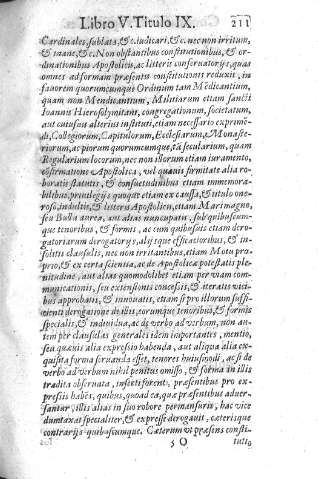 Libro V. Titulo IX. 211
Cardinales, sublata, &c. iudicari, &c. nec non irritum,
& inane, &c. Non obstantibus constitutionibus, & or-
dinationibus Apostolicis, ac litteris conseruatorijs, quas
omnes ad formam præsentis constitutionis reduxit, in
fauorem quorumcunque Ordinum tam Mendicantium,
quam non Mendicantium, Militiarum etiam sancti
Ioannis Hierosolymitani, congregationum, societatum,
aut cuiusuis alterius instituti, etiam necessario exprimẽ-
di, Collegiorum, Capitulorum, Ecclesiarum, Monaste-
riorum, ac piorum quorumcumque, tã secularium, quam
Regularium locorum, nec non illorum etiam iuramento,
cõfirmatione Apostolica, vel quauis firmitate alia ro-
boratis statutis, & consuetudinibus etiam immemora-
bilibus, priuilegijs quoque etiam ex causa, & titulo one-
roso, indultis, & litteris Apostolicis, etiam Mari magno,
seu Bulla aurea, aut alias nuncupatis, sub quibuscum-
que tenoribus, & formis, ac cum quibusuis etiam dero-
gatoriarum derogatorijs, alijsque efficacioribus, & in-
solitis clausulis, nec non irritantibus, etiam Motu pro-
prio, & ex certa scientia, ac de Apostolicæ potestatis ple-
nitudine, aut alias quomodolibet etiam per viam com-
municationis, seu extensionis concessis, & iteratis vici-
bus approbatis, & innouatis, etiam si pro illorum suffi-
cienti derogatione de illis, eorumque tenoribus, & formis
specialis, & indiuidua, ac de verbo ad verbum, non au-
tem per clausulas generales idem importantes, mentio,
seu quæuis alia expressio habenda, aut aliqua alia ex-
quisita forma seruanda esset, tenores huiusmodi, ac si de
verbo ad verbum nihil penitus omisso, & forma in illis
tradita obseruata, inserti forent, præsentibus pro ex-
pressis habẽs, quibus, quoad ea, quæ præsentibus aduer-
santur, illis alias in suo robore permansuris, hac vice
dumtaxat specialiter, & expresse derogauit, cæterisque
contrarijs quibuscumque. Cæterum vt præsens consti-
5 O tutio